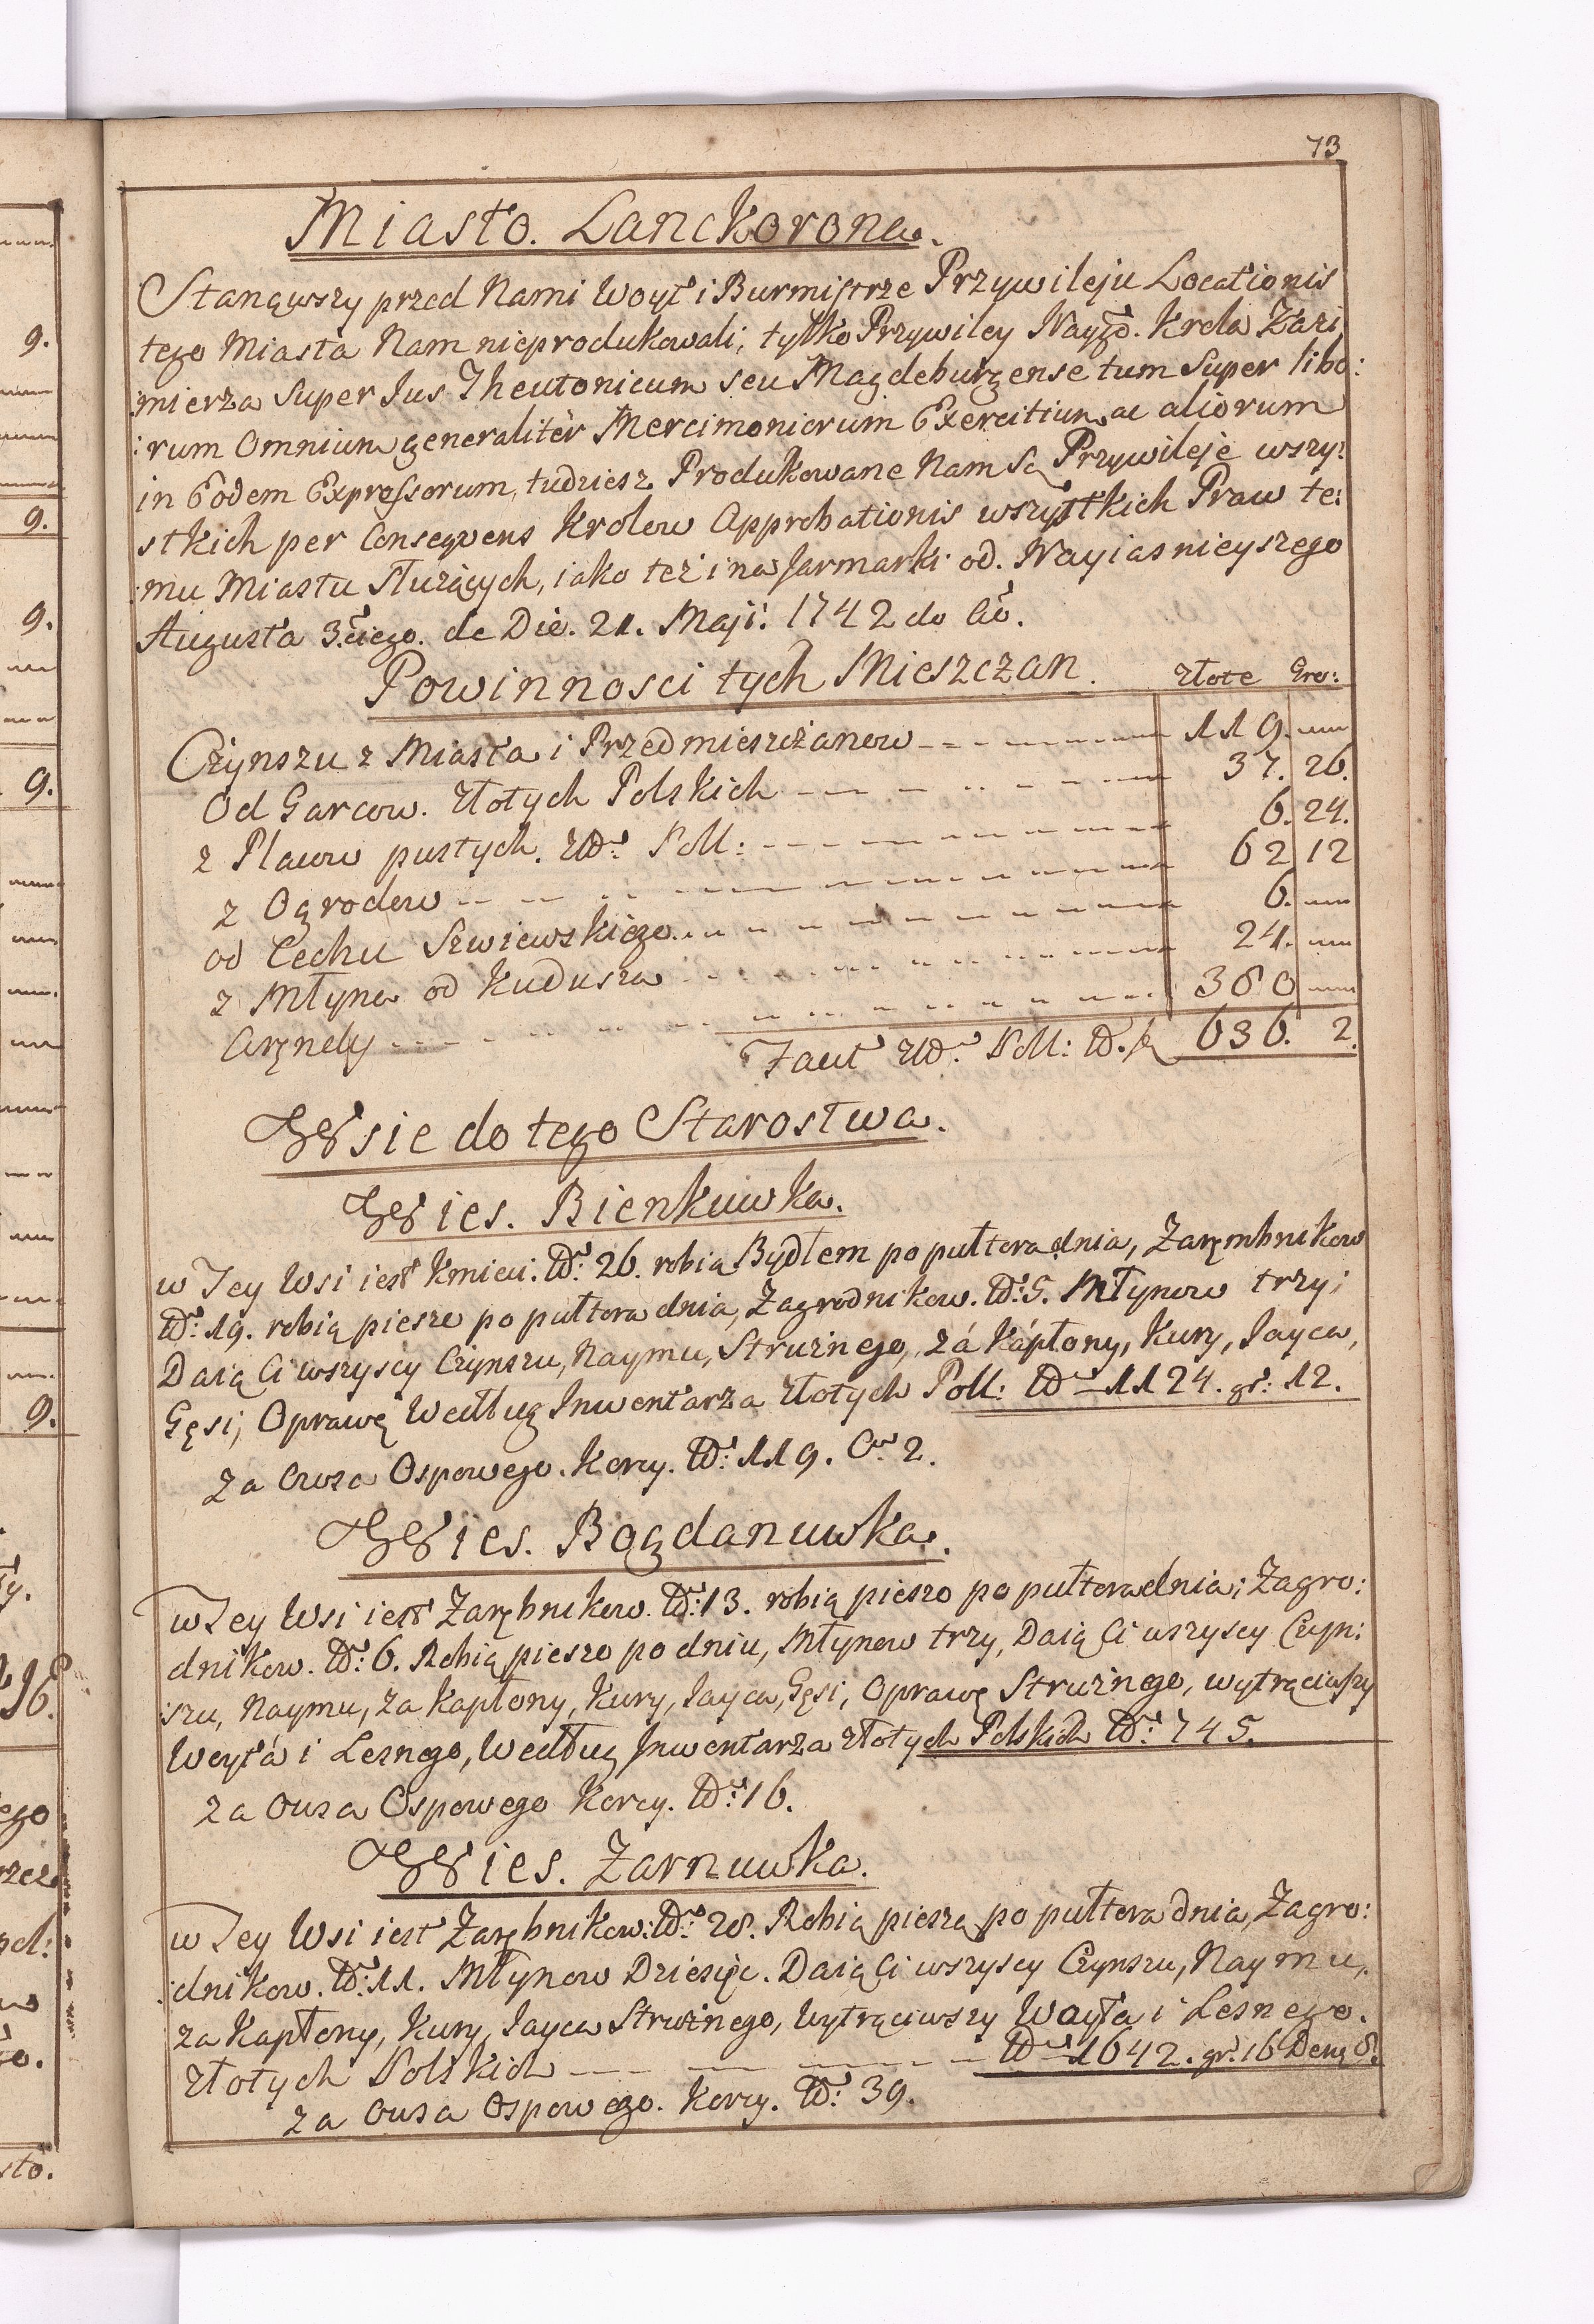 73
Miasto. Lanckorona.
Stanąwszy przed Nami Woyt i Burmistrze Przywileju Locationis
tego Miasta Nam nieprodukowali, tylko Przywiley Nayjo. Krola Kazi
:mierza Super Jus Theutonicum seu Magdeburgense tum Super libo:
:rum Omnium generalitèr Mercimoniorum Exercitium ac aliorum
in Eodem Expressorum, tudziesz Produkowane Nam są Przywileje wszy:
stkich per Conseqvens Krolow Approbationis wszystkich Praw te:
:mu Miastu służących, iako też i na Jarmarki od. Nayiasnieyszego
Augusta 3.ciego. de Die. 21. Maji: 1742do Ao.
Powinnosci tych Mieszczan. Złote Gro:
Czynszu z Miasta i Przedmieszczanow 119.
Od Garcow. Złotych Polskich 37. 26.
z Placow pustych. Zło: Poll: 6. 24.
z Ogrodow 62 12
od Cechu Szwiewskiego 6.
z Młyna od Kudusza 24.
Arendy 380
Facit Zło: Poll: No. 636. 2.
Wsie do tego Starostwa.
Wies. Bienkuwka.
w Tey Wsi iest Kmieci: No: 26. robią Bydłem po pułtora dnia, Zarembnikow
No: 19. robią piesze po pułtora dnia, Zagrodnikow. No: 5. Młynow trzy;
Daią Ci wszyscy Czynszu, Naymu, Stružnego, zá Kápłony, Kury, Jayca,
Gęsi, Oprawę Według Inwentarza Złotych Poll: No 1124. gr: 12.
Za Owsa Ospowego. Korcy. No: 119. Cw: 2.
Wies. Bogdanuwka.
w Tey Wsi iest Zarębnikow. No: 13. robią pieszo po pułtora dnia; Zagro:
dnikow. No: 6. Robią pieszo po dniu, Młynow trzy, Daią Ci wszyscy Czyn:
:szu, Naymu, za Kapłony, Kury, Jayca, Gęsi, Oprawę Stružnego, wytrąciwszy
Woytá i Lesnego, Według Inwentarza Złotych Polskich No: 745.
za Owsa Ospowego Korcy. No: 16.
Wies. Zarnuwka.
w Tey Wsi iest Zarębnikow: No: 28. Robią pieszą po pułtora dnia, Zagro:
:dnikow. No: 11. Młynow Dziesięć. Daią Ci wszyscy Czynszu, Naymu,
za Kapłony, Kury, Jayca Stružnego, Wytrąciwszy Woyta i Lesnego.
Złotych Polskich No 1642. gr: 16 Den: 8.
za Owsa Ospowego. Korcy. No: 39.